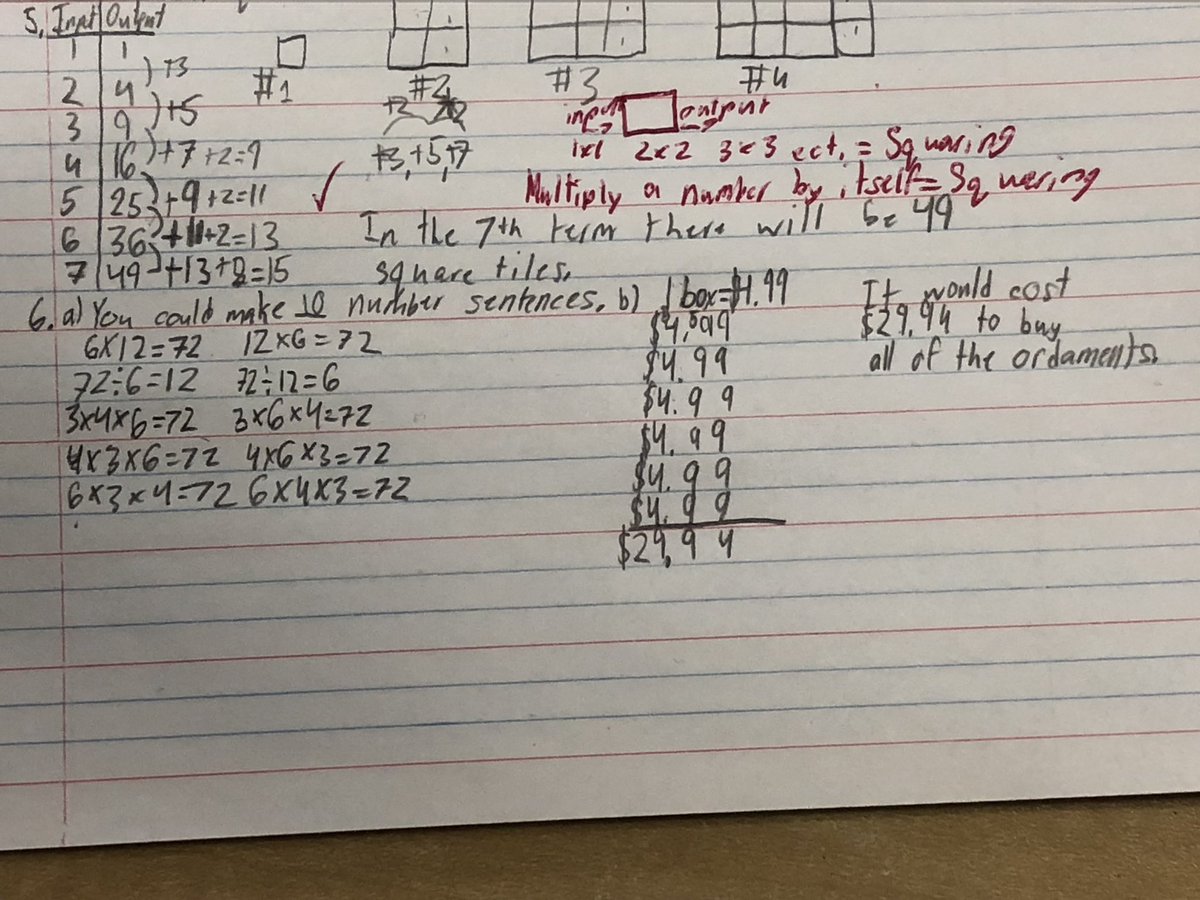 5. Input Output
1 1
2 4 )+3
#1 #2 #3 #4
3 9 )+5
input output
4 16 )+7 +2=9
+3, +5, +7
1x1 2x2 3x3 ect. = Squaring
5 25 )+9 +2=11 ✓
Multiply a number by itself= Squering
6 36 )+11+2=13
In the 7th term there will be 49
7 49 )+13+2=15
square tiles.
6. a) You could make 10 number sentences.
6x12=72 12x6=72
72÷6=12 72÷12=6
3x4x6=72 3x6x4=72
4x3x6=72 4x6x3=72
6x3x4=72 6x4x3=72
b) 1 box=$4.99
$4.99
$4.99
$4.99
$4.99
$4.99
$4.99
$29.94
It would cost
$29.94 to buy
all of the ordaments.